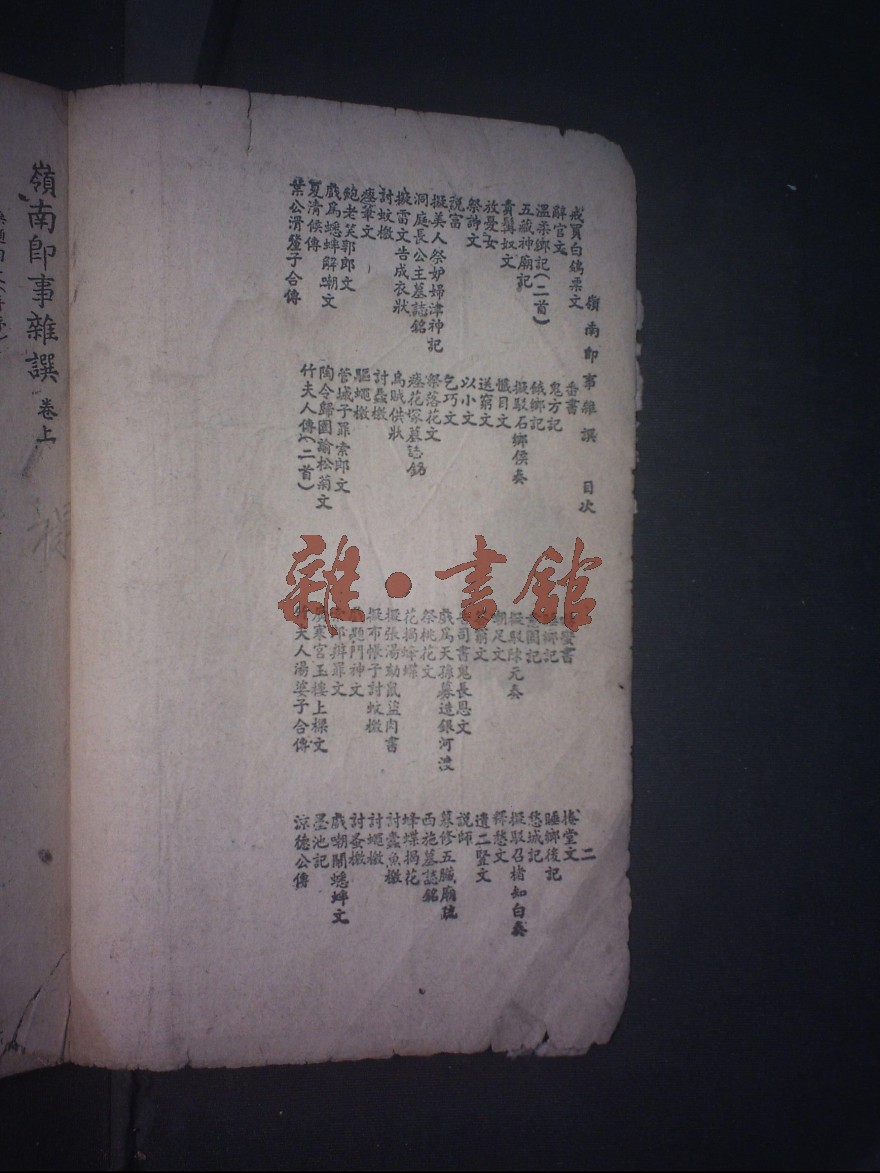 嶺南即事雜譔 目次 二
戒買白鴿票文
辭官文
溫柔鄉記(二首)
五藏神廟記
責髯奴文
放憂女
祭詩文
說富
擬美人祭妒婦津神記
洞庭長公主墓誌銘
擬雷文告成衣狀
討蚊檄
瘞筆文
鮑老笑郭郎文
戲為蟋蟀解嘲文
夏清侯傳
葉公滑釐子合傳
香書
鬼方記
餓鄉記
擬駁石鄉侯奏
懺目文
送窮文
以小文
乞巧文
祭落花文
瘞花塚墓誌銘
烏賊供狀
討蝨檄
驅蠅檄
管城子罪索郎文
陶令歸園諭松菊文
竹夫人傳(二首)
書
鄉記
國記
擬駁陳元奏
嘲足文
窮文
司書鬼長恩文
戲為天孫募造銀河渡
祭桃花文
花揭蜂蝶
擬張湯劾鼠盜肉書
擬布帳子討蚊檄
題門神文
郎辯罪文
寒宮玉樓上樑文
竹夫人湯婆子合傳
捲堂文
睡鄉後記
愁城記
擬駁召楮知白奏
釋愁文
遣二豎文
說師
募修五臟廟疏
西施墓誌銘
蜂蝶揭花
討蠹魚檄
討蠅檄
討蚤檄
戲嘲鬭蟋蟀文
墨池記
涼德公傳
嶺南即事雜譔 卷上
雜·書館